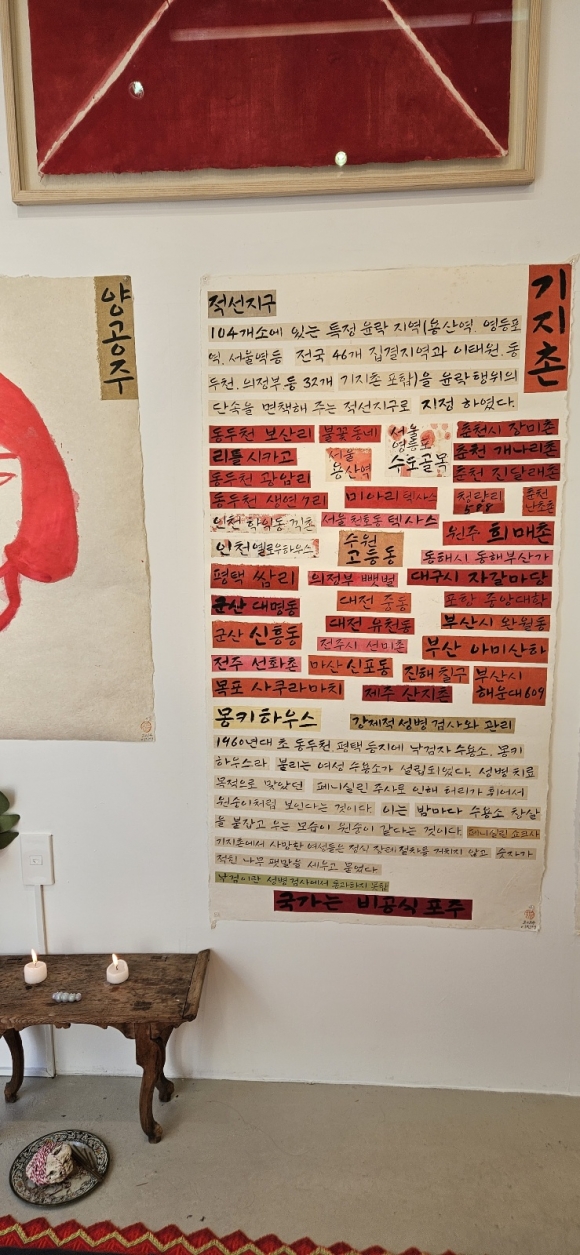 양공주
기지촌
적선지구
104개소에 있는 특정 윤락 지역(용산역. 영등포
역. 서울역등 전국 46개 집결지역과 이태원. 동
두천. 의정부 등 32개 기지촌 포함)을 윤락행위의
단속을 면책해 주는 적선지구로 지정 하였다.
동두천 보산리 불꽃동네 서울 영등포 수도골목 춘천시 장미촌
리틀 시카고 서울 용산역 춘천 개나리촌
동두천 광암리 춘천 진달래촌
동두천 생연 7리 미아리 텍사스 청량리 588 춘천 난초촌
인천 학익동 끽촌 서울 천호동 텍사스 원주 희매촌
인천옐로우하우스 수원 고등동 동해시 동해부산가
평택 쌈리 의정부 빼벌 대구시 자갈마당
군산 대명동 대전 중동 포항 중앙대학
군산 신흥동 대전 유천동 부산시 완월동
전주시 선미촌 부산 아미산하
전주 선화촌 마산 신포동 진해 칠구 부산시 해운대609
목포 사쿠라마치 제주 산지촌
몽키하우스 강제적 성병 검사와 관리
1960년대 초 동두천. 평택 등지에 낙검자 수용소. 몽키
하우스라 불리는 여성 수용소가 설립되었다. 성병 치료
목적으로 맞았던 페니실린 주사로 인해 허리가 휘어서
원숭이처럼 보인다는 것이다 이는 밤마다 수용소 창살
을 붙잡고 우는 모습이 원숭이 같다는 것이다 페니실린 쇼크사
기지촌에서 사망한 여성들은 정식 장례 절차를 거치지 않고 숫자가
적힌 나무 팻말을 세우고 묻었다
낙검이란 성병검사에서 통과하지 못함
국가는 비공식 포주